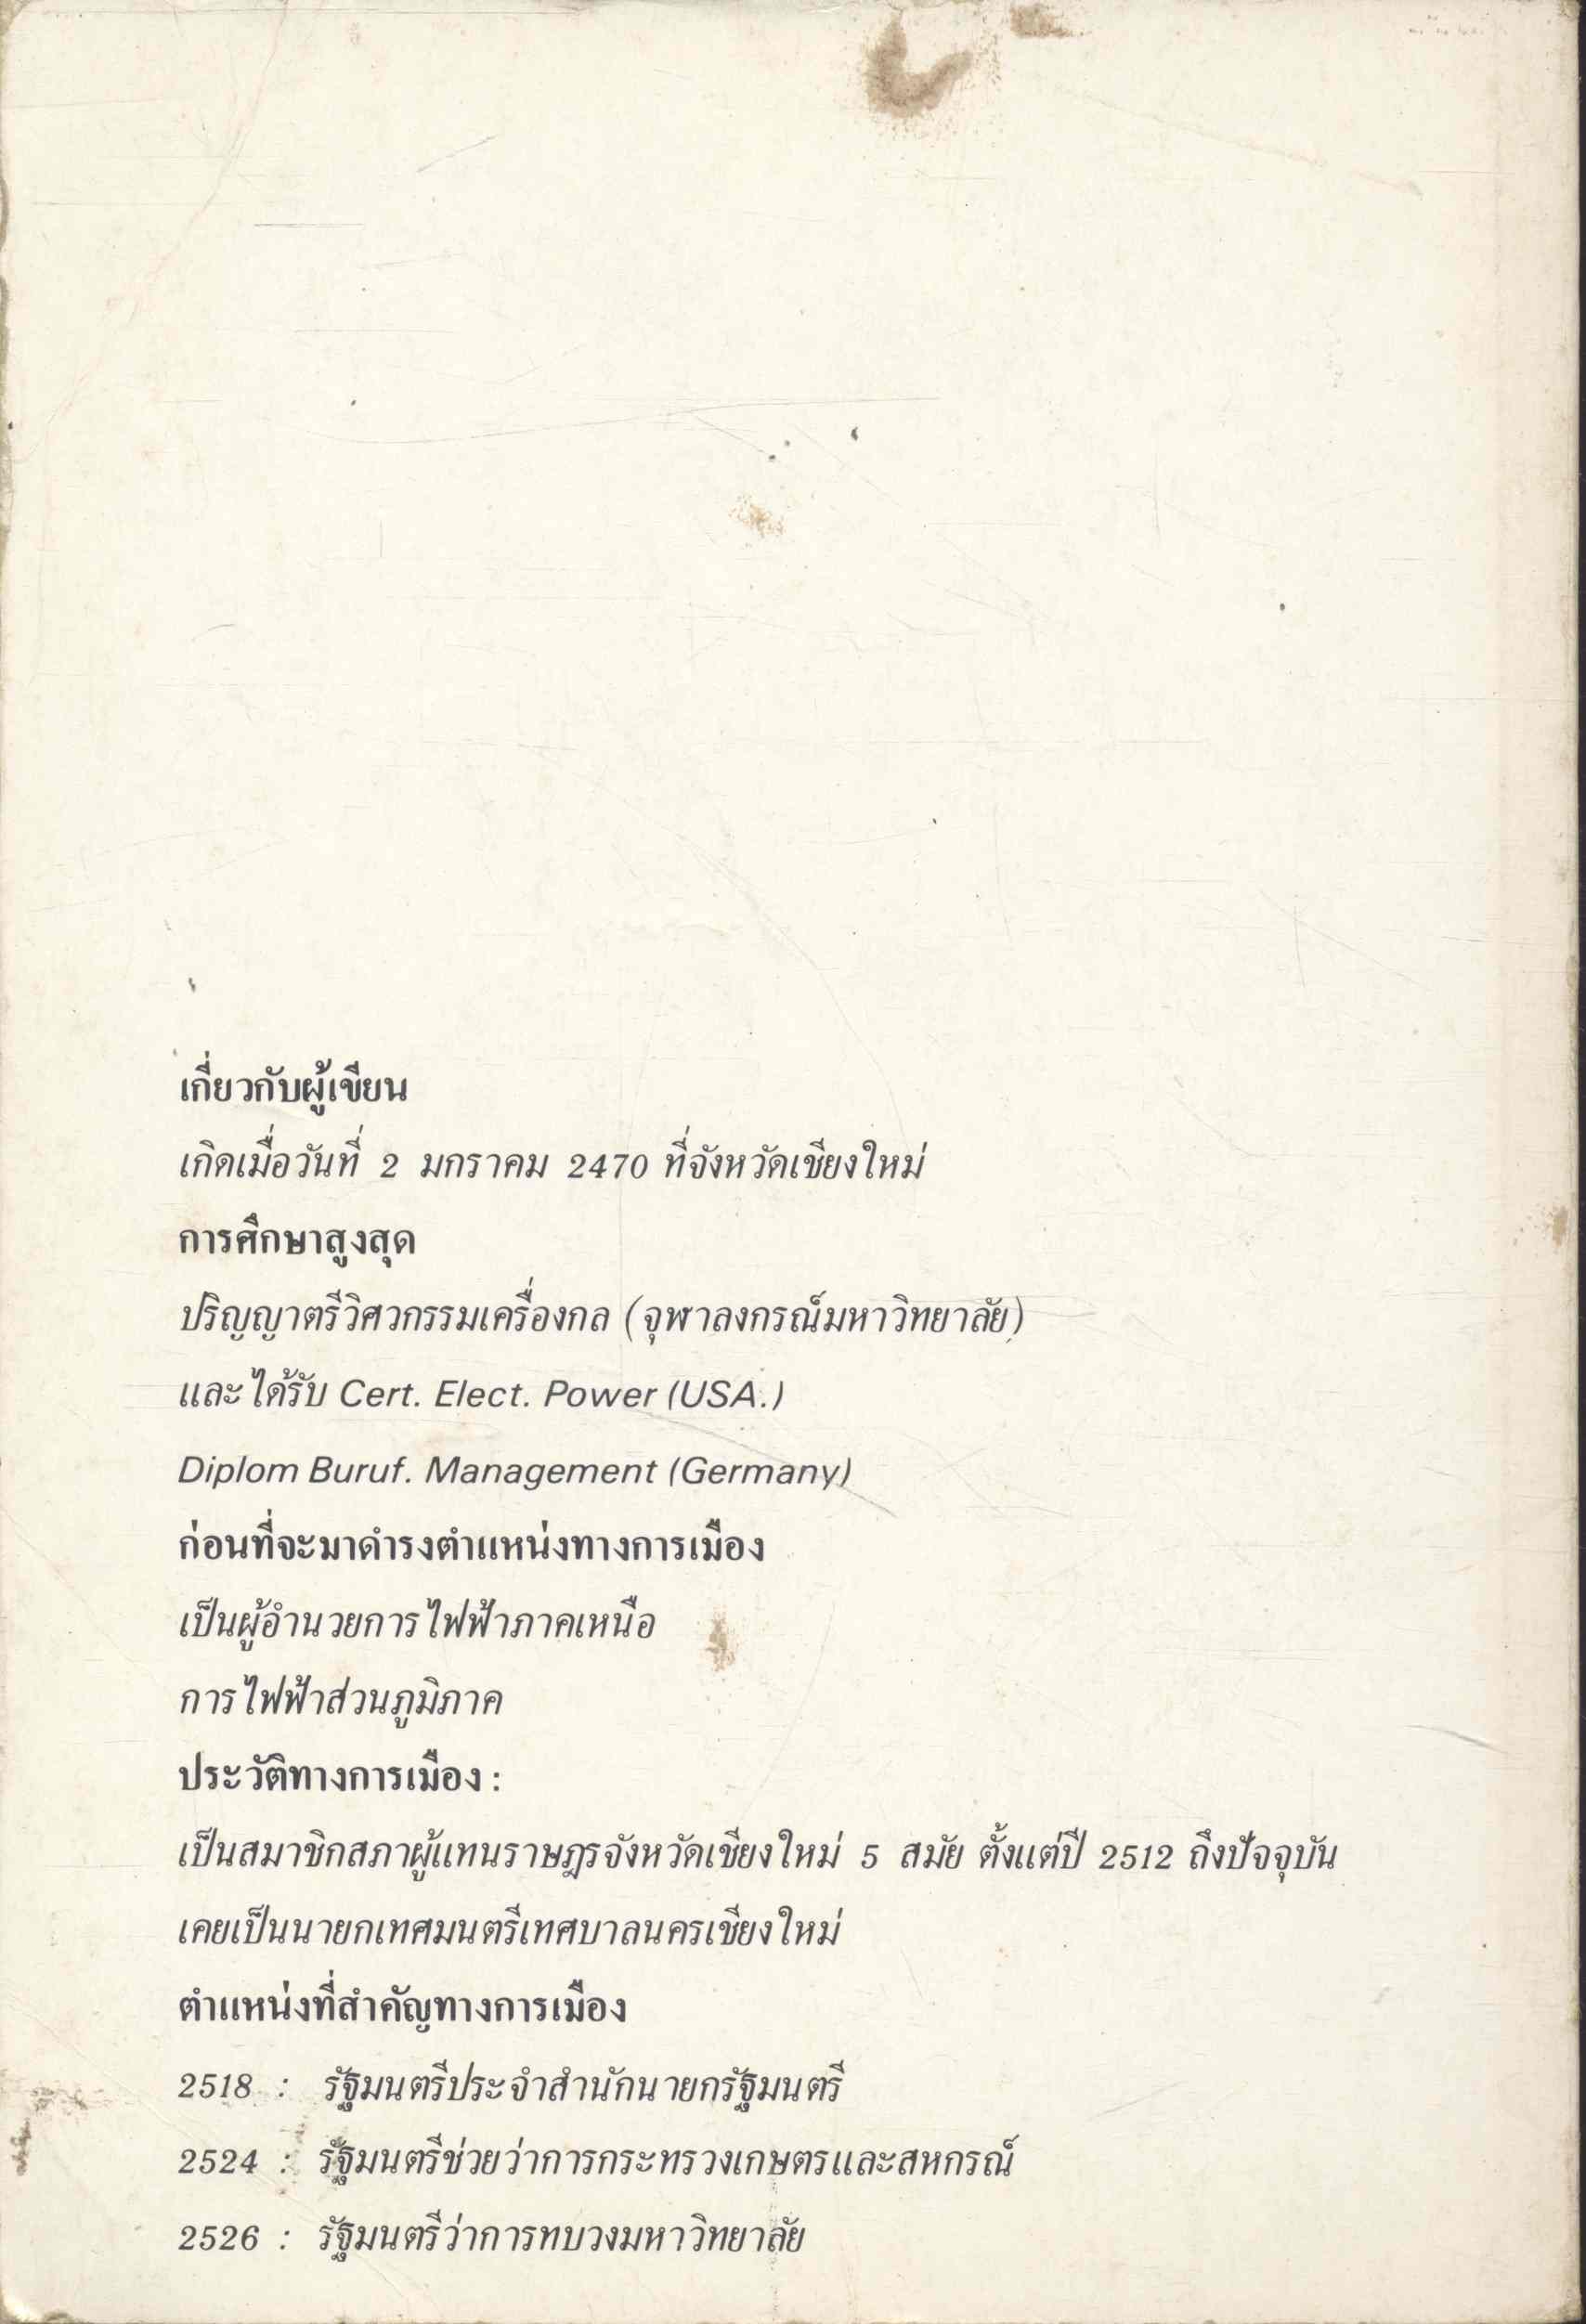 เกี่ยวกับผู้เขียน
เกิดเมื่อวันที่ 2 มกราคม 2470 ที่จังหวัดเชียงใหม่
การศึกษาสูงสุด
ปริญญาตรีวิศวกรรมเครื่องกล (จุฬาลงกรณ์มหาวิทยาลัย)
และได้รับ Cert. Elect. Power (USA.)
Diplom Buruf. Management (Germany)
ก่อนที่จะมาดำรงตำแหน่งทางการเมือง
เป็นผู้อำนวยการไฟฟ้าภาคเหนือ
การไฟฟ้าส่วนภูมิภาค
ประวัติทางการเมือง :
เป็นสมาชิกสภาผู้แทนราษฎรจังหวัดเชียงใหม่ 5 สมัย ตั้งแต่ปี 2512 ถึงปัจจุบัน
เคยเป็นนายกเทศมนตรีเทศบาลนครเชียงใหม่
ตำแหน่งที่สำคัญทางการเมือง
2518 : รัฐมนตรีประจำสำนักนายกรัฐมนตรี
2524 : รัฐมนตรีช่วยว่าการกระทรวงเกษตรและสหกรณ์
2526 : รัฐมนตรีว่าการทบวงมหาวิทยาลัย